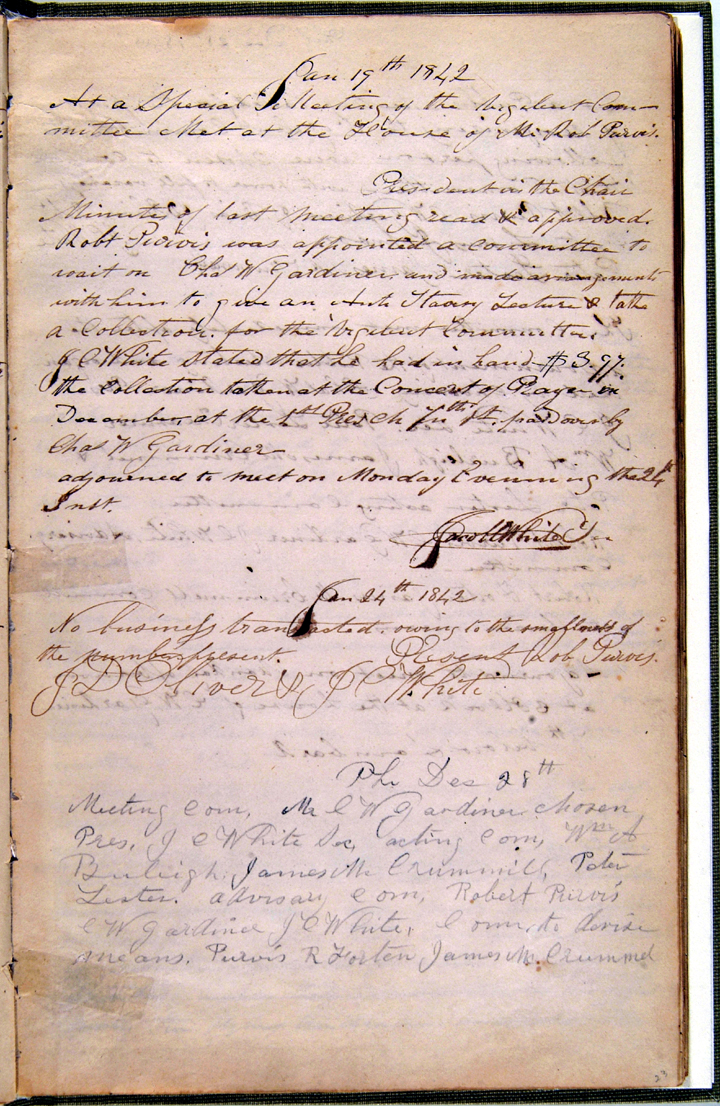 Jan 19th 1842
At a Special Meeting of the Vigilent Com-
mittee Met at the House of Mr. Rob Purvis.
President in the Chair
Minutes of last meeting read & approved.
Robt Purvis was appointed a committee to
wait on Chas W Gardiner and made arrangements
with him to give an Anti Slavery Lecture & take
a Collection. for the Vigilent Committee.
J C White stated that he had in hand $3,97.
the Collection taken at the Concert of Prayer in
December, at the 1st Pres Ch 7th St. paid over by
Chas W Gardiner
adjourned to meet on Monday Evenning the 24th
Inst.
Jacob C White Sec
Jan 24th 1842
No business transacted. owing to the smallness of
the number present. Present Rob Purvis.
J D Oliver & J C White
Phi Dec 28th
Meeting Com, Mr C W Gardiner chosen
Pres, J C White Sec, acting Com, Wm A
Burleigh, James Mc Crummill, Peter
Lester. advisary Com, Robert Purvis
C W Gardiner J C White, Com, to devise
means. Purvis R Forten James Mc Crummel
23